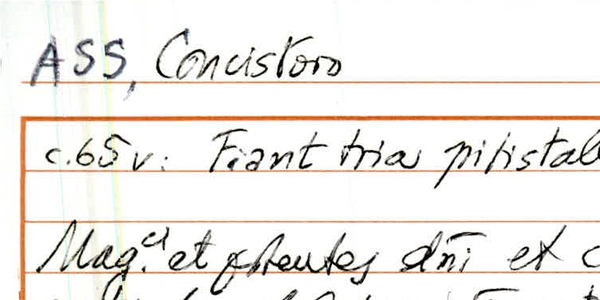 ASS, Concistoro
c.65v: Fiant tria pipistal
Mag.ci et p̄tentes dn̄i et c